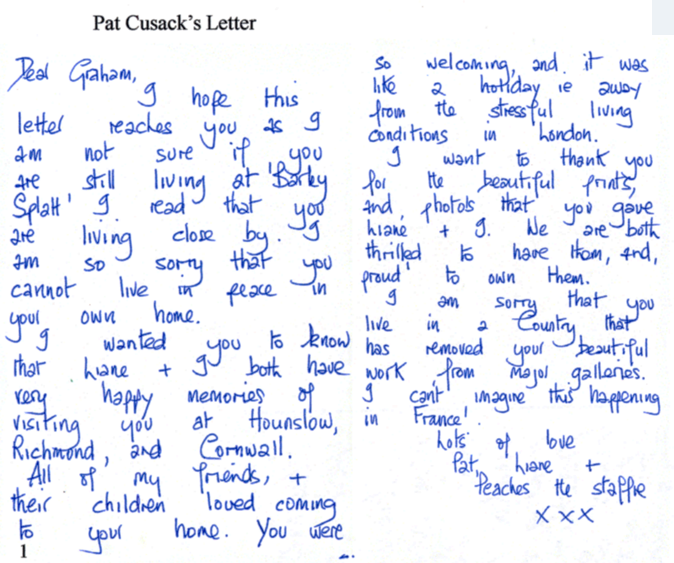 Pat Cusack's Letter
Dear Graham,
I hope this
letter reaches you as I
am not sure if you
are still living at 'Barley
Splatt' I read that you
are living close by. I
am so sorry that you
cannot live in peace in
your own home.
I wanted you to know
that Liane + I both have
very happy memories of
visiting you at Hounslow,
Richmond, and Cornwall.
All of my friends, +
their children loved coming
to your home. You were
1
so welcoming, and it was
like a holiday ie away
from the stressful living
conditions in London.
I want to thank you
for the beautiful prints,
and, photo's that you gave
Liane + I. We are both
thrilled to have them, and,
proud to own them.
I am sorry that you
live in a Country that
has removed your beautiful
work from Major galleries.
I can't imagine this happening
in France!
Lots of love
Pat, Liane +
Peaches the staffie
x x x